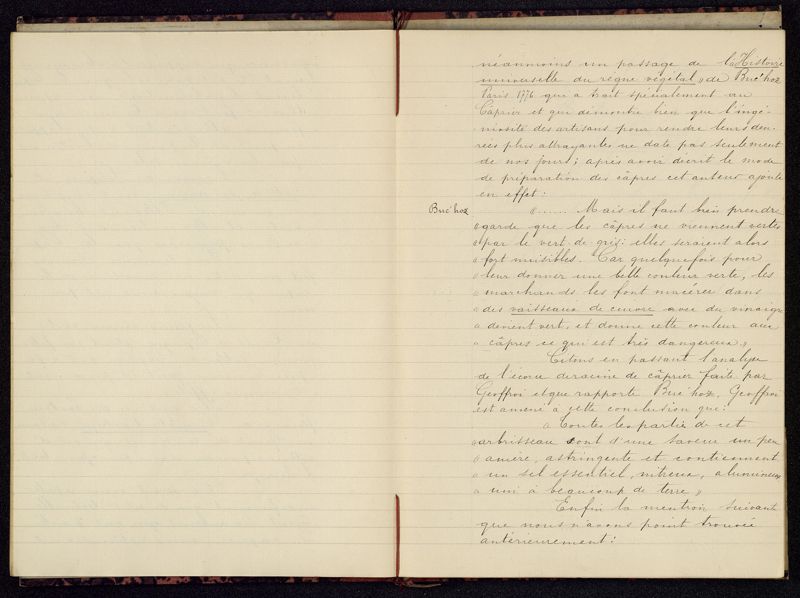 néanmoins un passage de l'Histoire
universelle du règne végétal, de Buc'hoz
Paris 1776 qui a trait spécialement au
Câprier et qui démontre bien que l'ingé-
niosité des artisans pour rendre leurs den-
rées plus attrayantes ne date pas seulement
de nos jours ; après avoir décrit le mode
de préparation des câpres cet auteur ajoute
en effet :
Buc'hoz
«...... Mais il faut bien prendre
« garde que les câpres ne viennent vertes
« par le vert-de-gris : elles seraient alors
« fort nuisibles. Car quelquefois pour
« leur donner une belle couleur verte, les
« marchands les font macérer dans
« des vaisseaux de cuivre avec du vinaigre
« devient vert, et donne cette couleur aux
« câpres ce qui est très dangereux »
Citons en passant l'analyse
de l'écorce de racine de câprier faite par
Geoffroi et que rapporte Buc'hoz. Geoffroi
est amené à cette conclusion que :
« Toutes les partie de cet
« arbrisseau sont d'une saveur un peu
« amère, astringente et contiennent
« un sel essentiel, nitreux, alumineux
« uni à beaucoup de terre »
Enfin la mention suivante
que nous n'avons point trouvée
antérieurement :